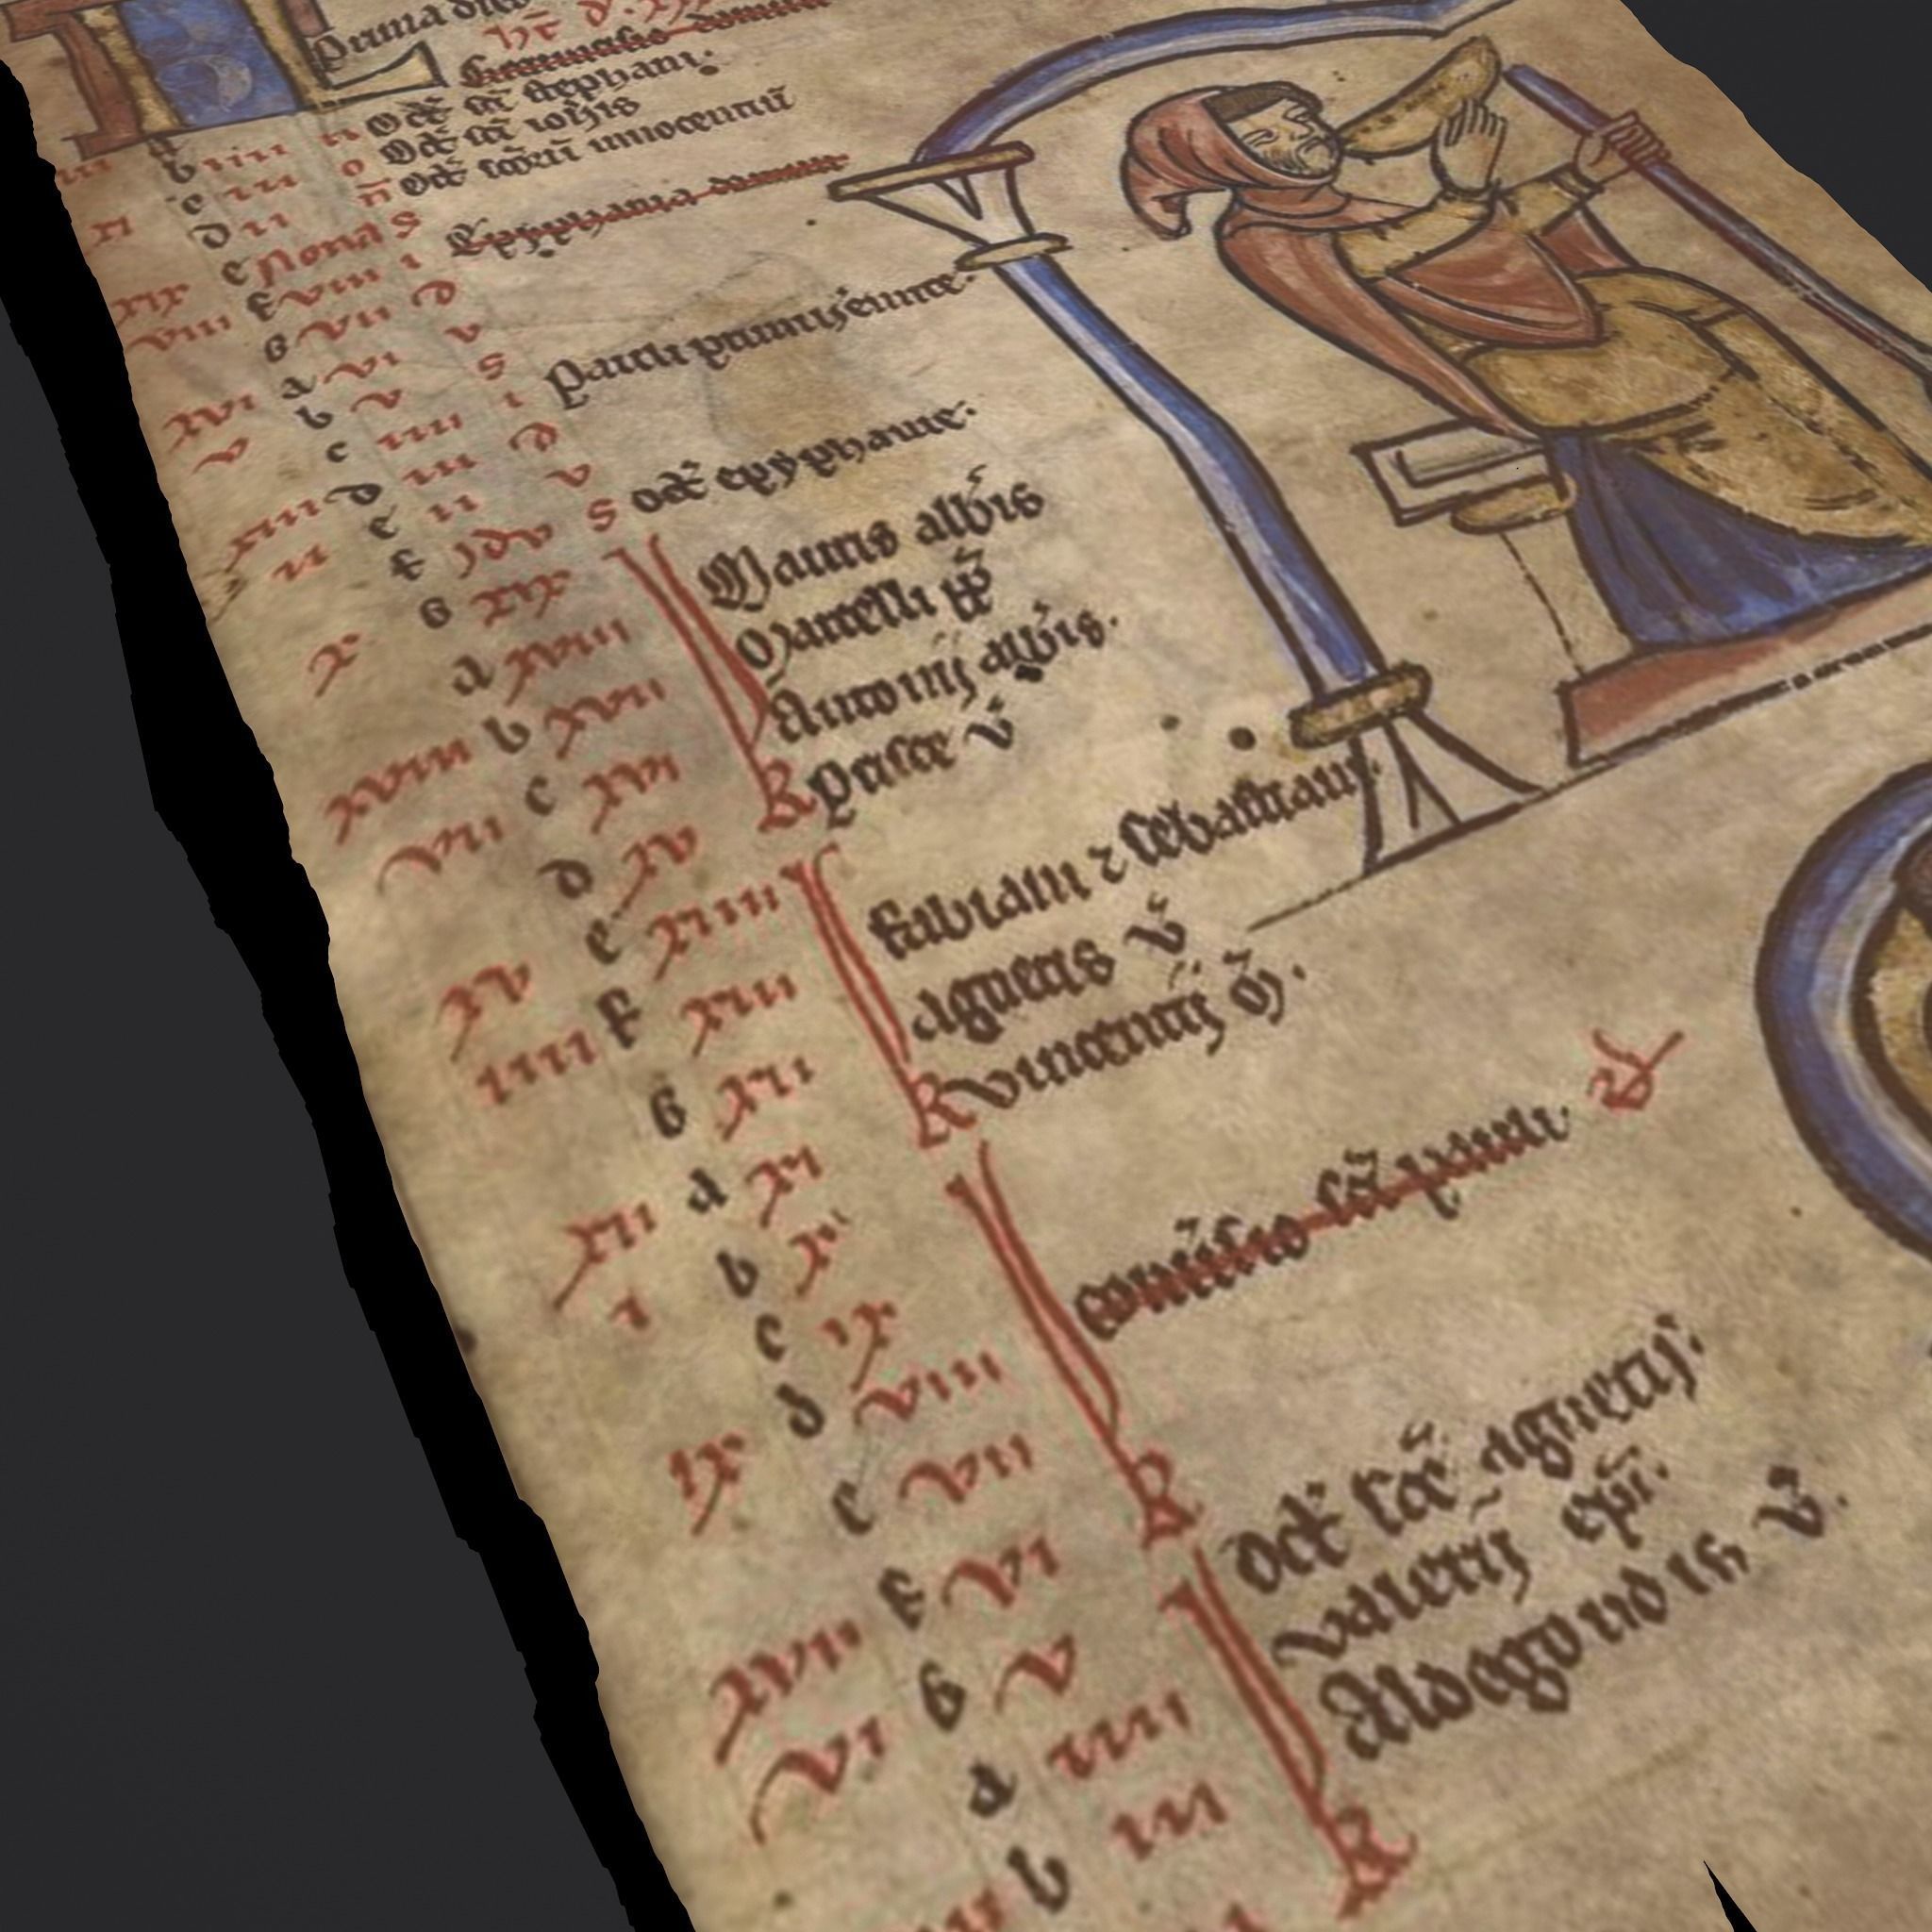 Prima dies
Circumcisio domini
b iiii n Oct sci stephani.
c iii o Oct sci iohis
d ii n Oct scoru innocentu
xix e Nonas
viii f viii i Epyphania domini
G vii d
xvi a vi v
v b v s
c iiii i Pauli primi heremite.
xiii d iii d
ii e ii v
f idv s oct epyphanie.
x G xix
a xviii Mauris abbis
xviii b xvii Marcelli pp
vii c xvi Antonij abbis.
d xv R prisce v
e xiiii
xv f xiii fabiani 7 sebastiani
iiii G xii agnetis v
a xi R vincentij m.
xii b x
i c ix
d viii conuersio sci pauli.
ix e vii
f vi R
xvii G v Oct sce agnetis.
vi a iiii valerij epi.
b iii Aldegundis v.
R